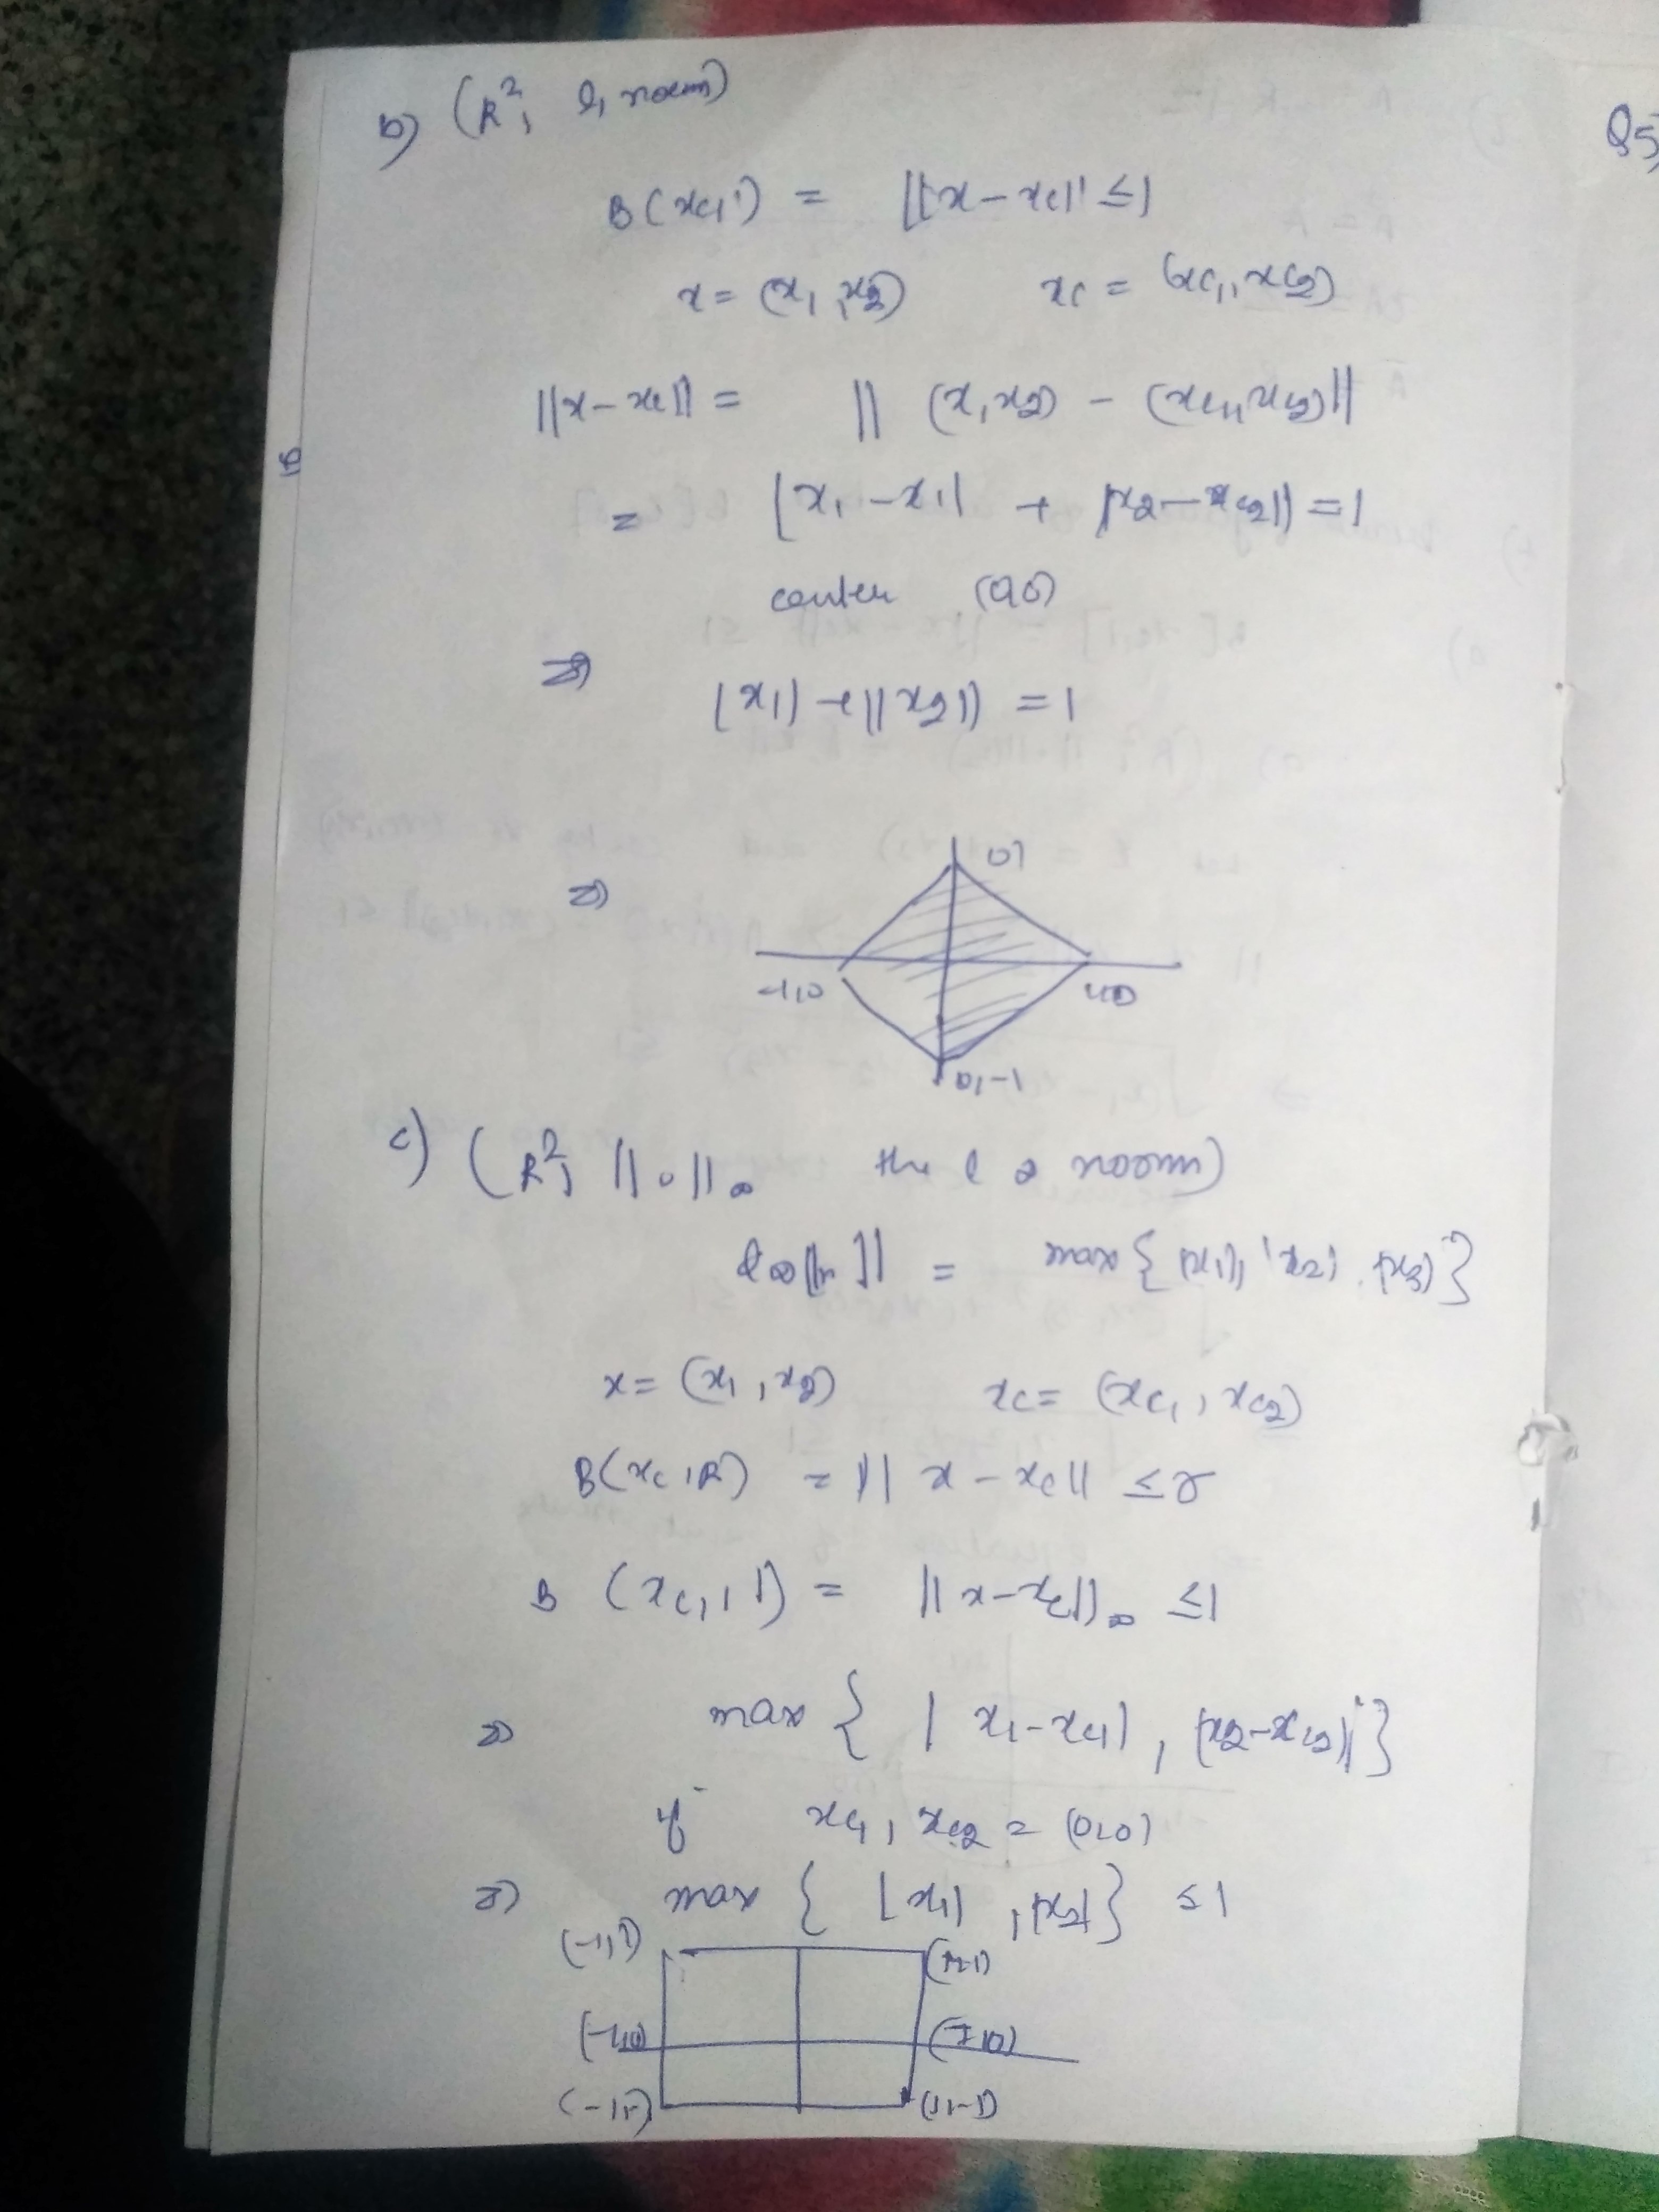 b) (R², l₁ norm)
B(xc,1) = ||x - xc|| ≤ 1
x = (x₁, x₂) xc = (xc₁, xc₂)
||x - xc|| = || (x₁, x₂) - (xc₁, xc₂)||
= |x₁ - x₁| + |x₂ - xc₂|| = 1
center (0,0)
⇒ |x₁| + ||x₂|| = 1
⇒
0,1
-1,0 1,0
0,-1
c) (R², ||.||∞ the l ∞ norm)
l∞ || || = max { |x₁|, |x₂|, |x₃| }
x = (x₁, x₂) xc = (xc₁, xc₂)
B(xc, R) = || x - xc || ≤ r
B (xc, 1) = || x - xc ||∞ ≤ 1
⇒ max { | x₁ - xc₁|, |x₂ - xc₂| }
if xc₁, xc₂ = (0,0)
⇒ max { |x₁|, |x₂| } ≤ 1
(-1,1)
(-1,0)
(1,-1)
Q5